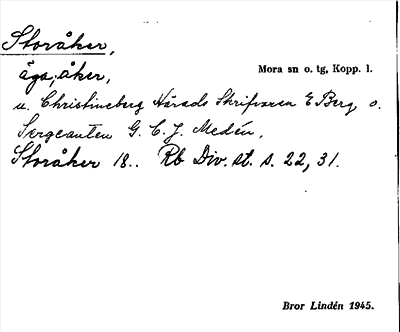 Storåker,
äga, åker,
Mora sn o. tg, Kopp. l.
u. Christineberg Härads Skrifvaren E Berg o.
Sergeanten G. C. J. Medén,
Storåker 18.. Rb Div. st. s. 22, 31.
Bror Lindén 1945.